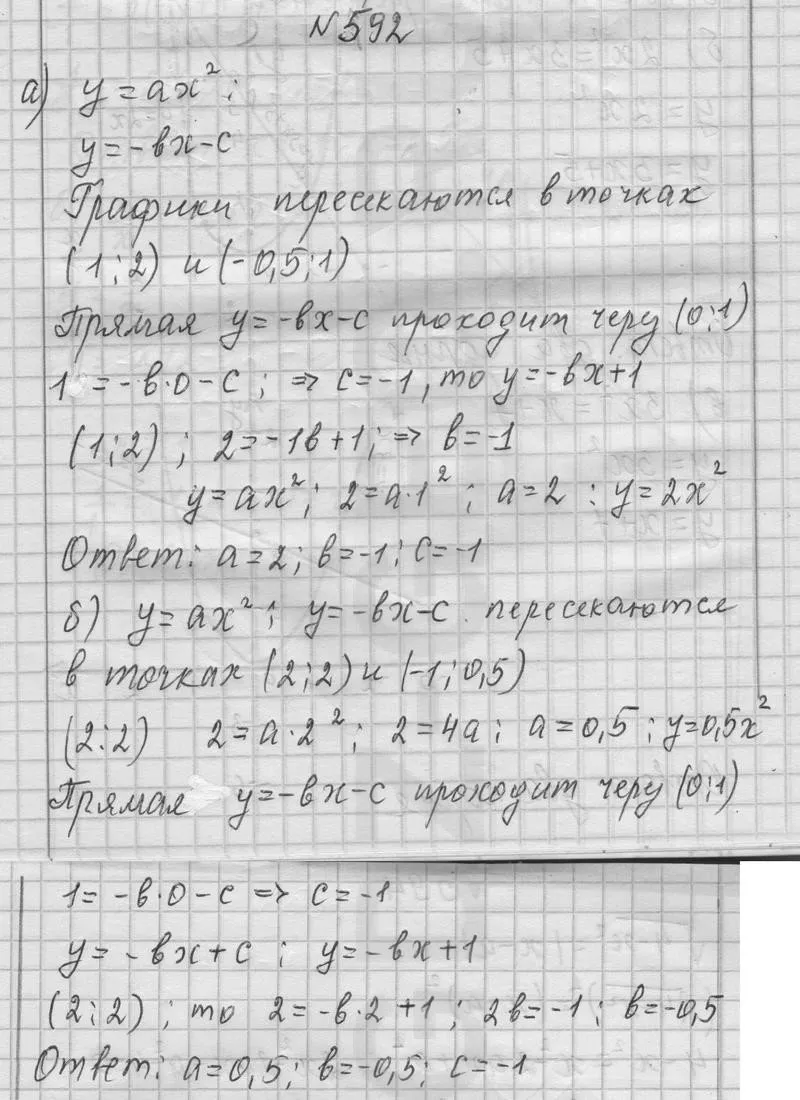 №592
а) y = ax²;
y = -вx-c
Графики пересекаются в точках
(1;2) и (-0,5;1)
Прямая y = -вx-c проходит черу (0;1)
1 = -в·0-c; => c=-1, то y=-вx+1
(1;2); 2=-1в+1; => в=-1
y=ax²; 2=a·1²; a=2 : y=2x²
Ответ: a=2; в=-1; c=-1
б) y=ax²; y=-вx-c. пересекаются
в точках (2;2) и (-1;0,5)
(2;2) 2=a·2²; 2=4a; a=0,5; y=0,5x²
Прямая y=-вx-c проходит черу (0;1)
1= -в·0-c => c=-1
y= -вx+c ; y=-вx+1
(2;2); то 2=-в·2+1; 2в=-1; в=-0,5
Ответ: a=0,5; в=-0,5; c=-1